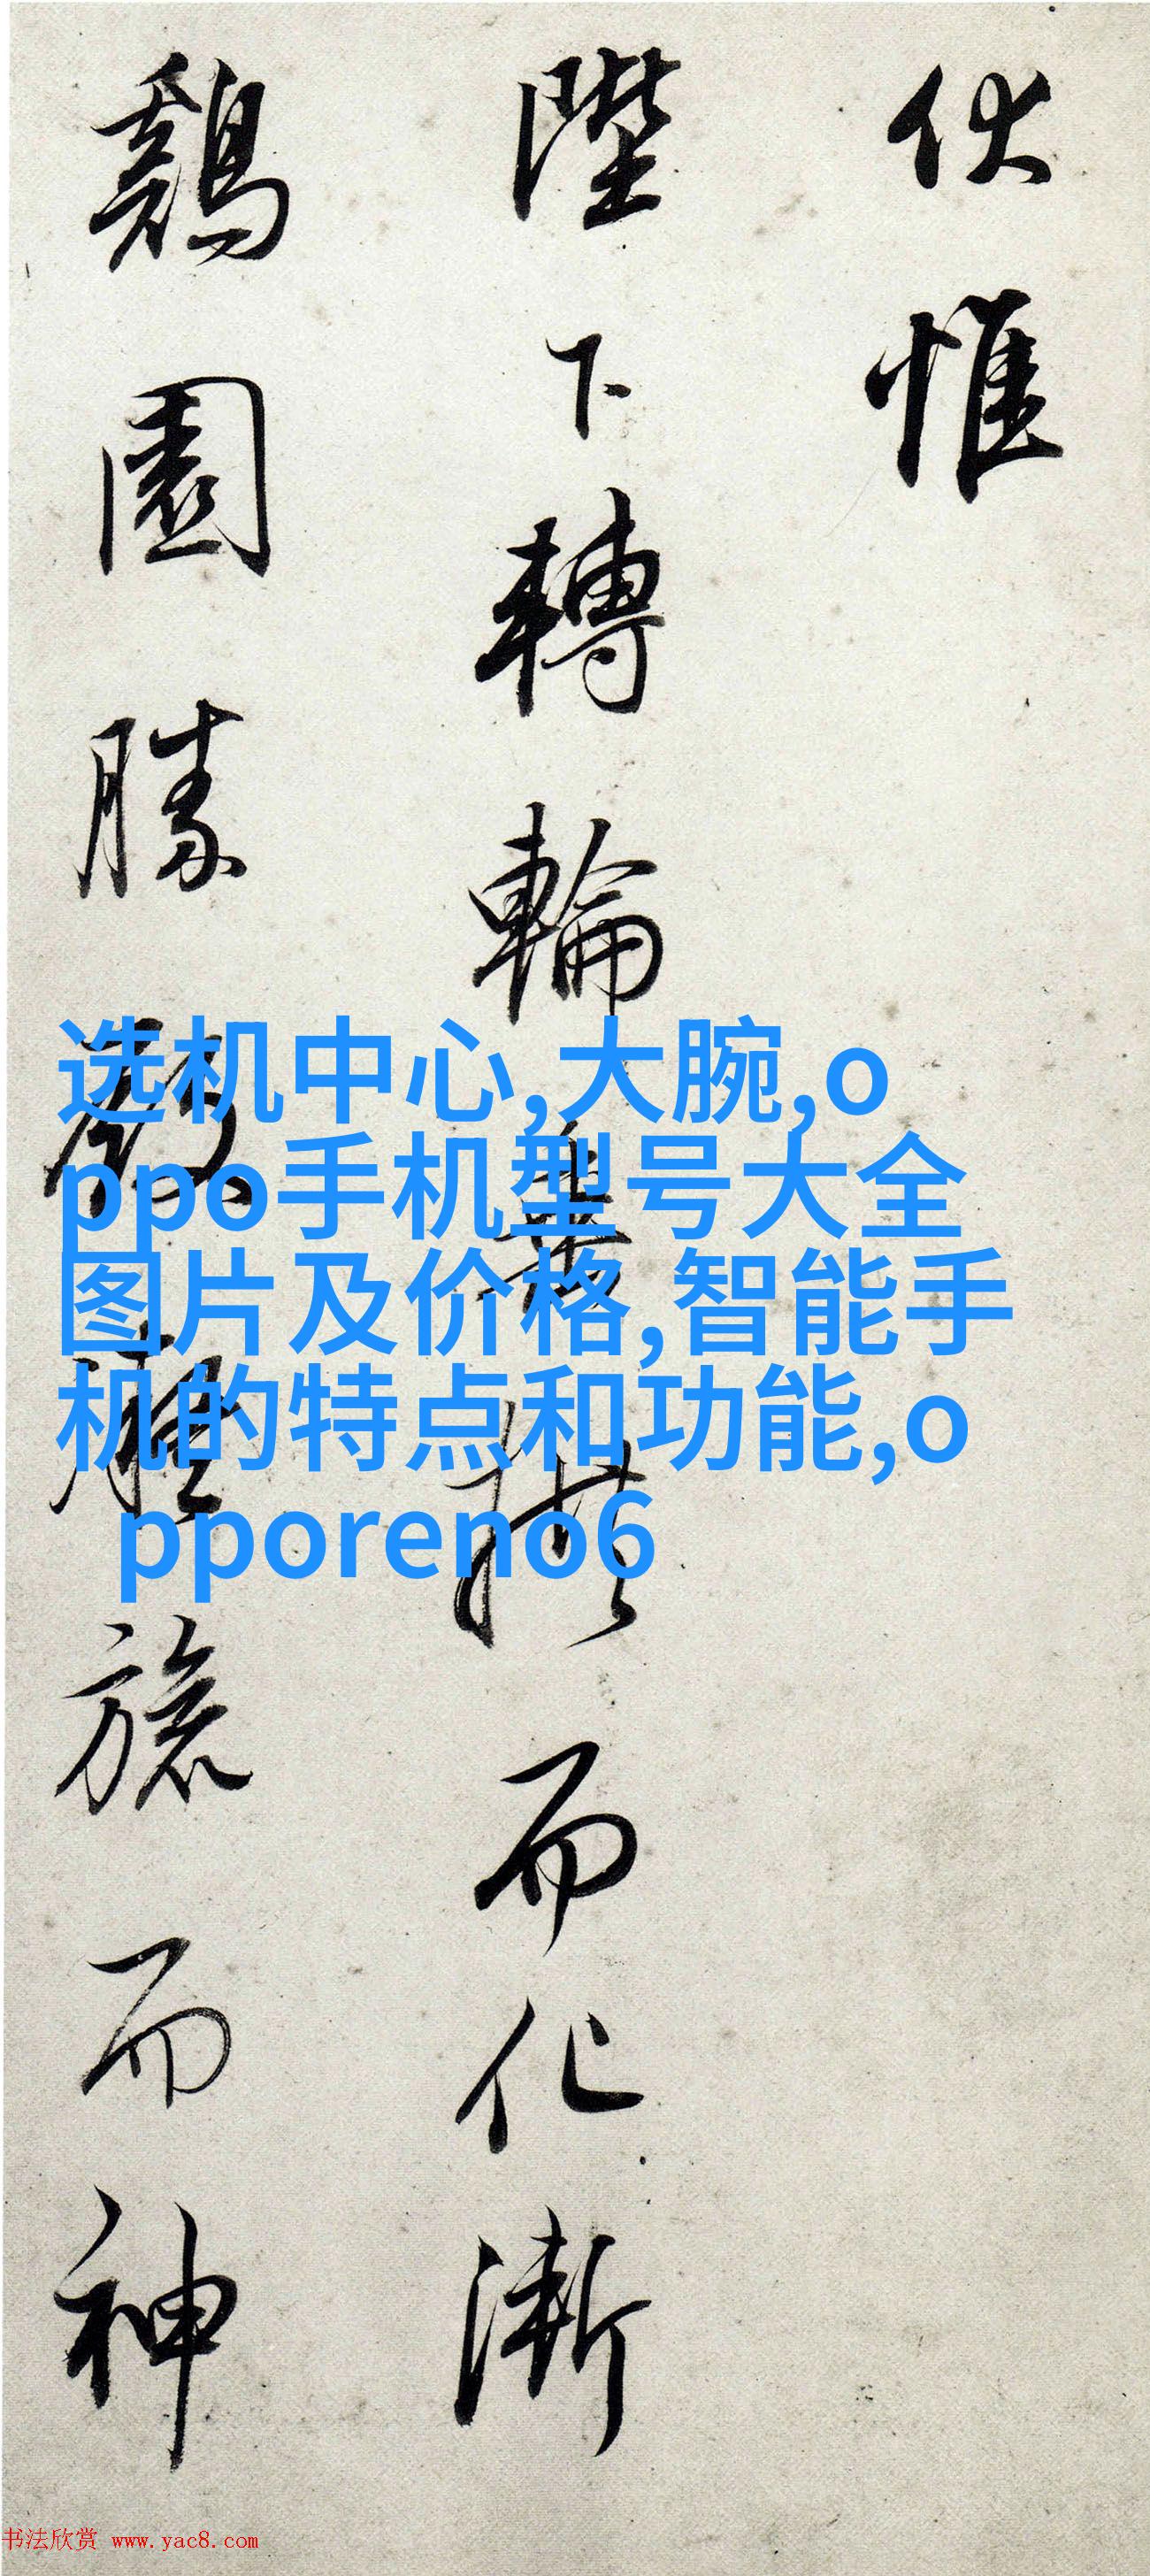 伏惟
陛下轉輪垂拱而化漸
鷄園勝殿凝旒而神
选机中心,大腕,o
ppo手机型号大全
图片及价格,智能手
机的特点和功能,o
pporeno6
书法欣赏 www.yac8.com